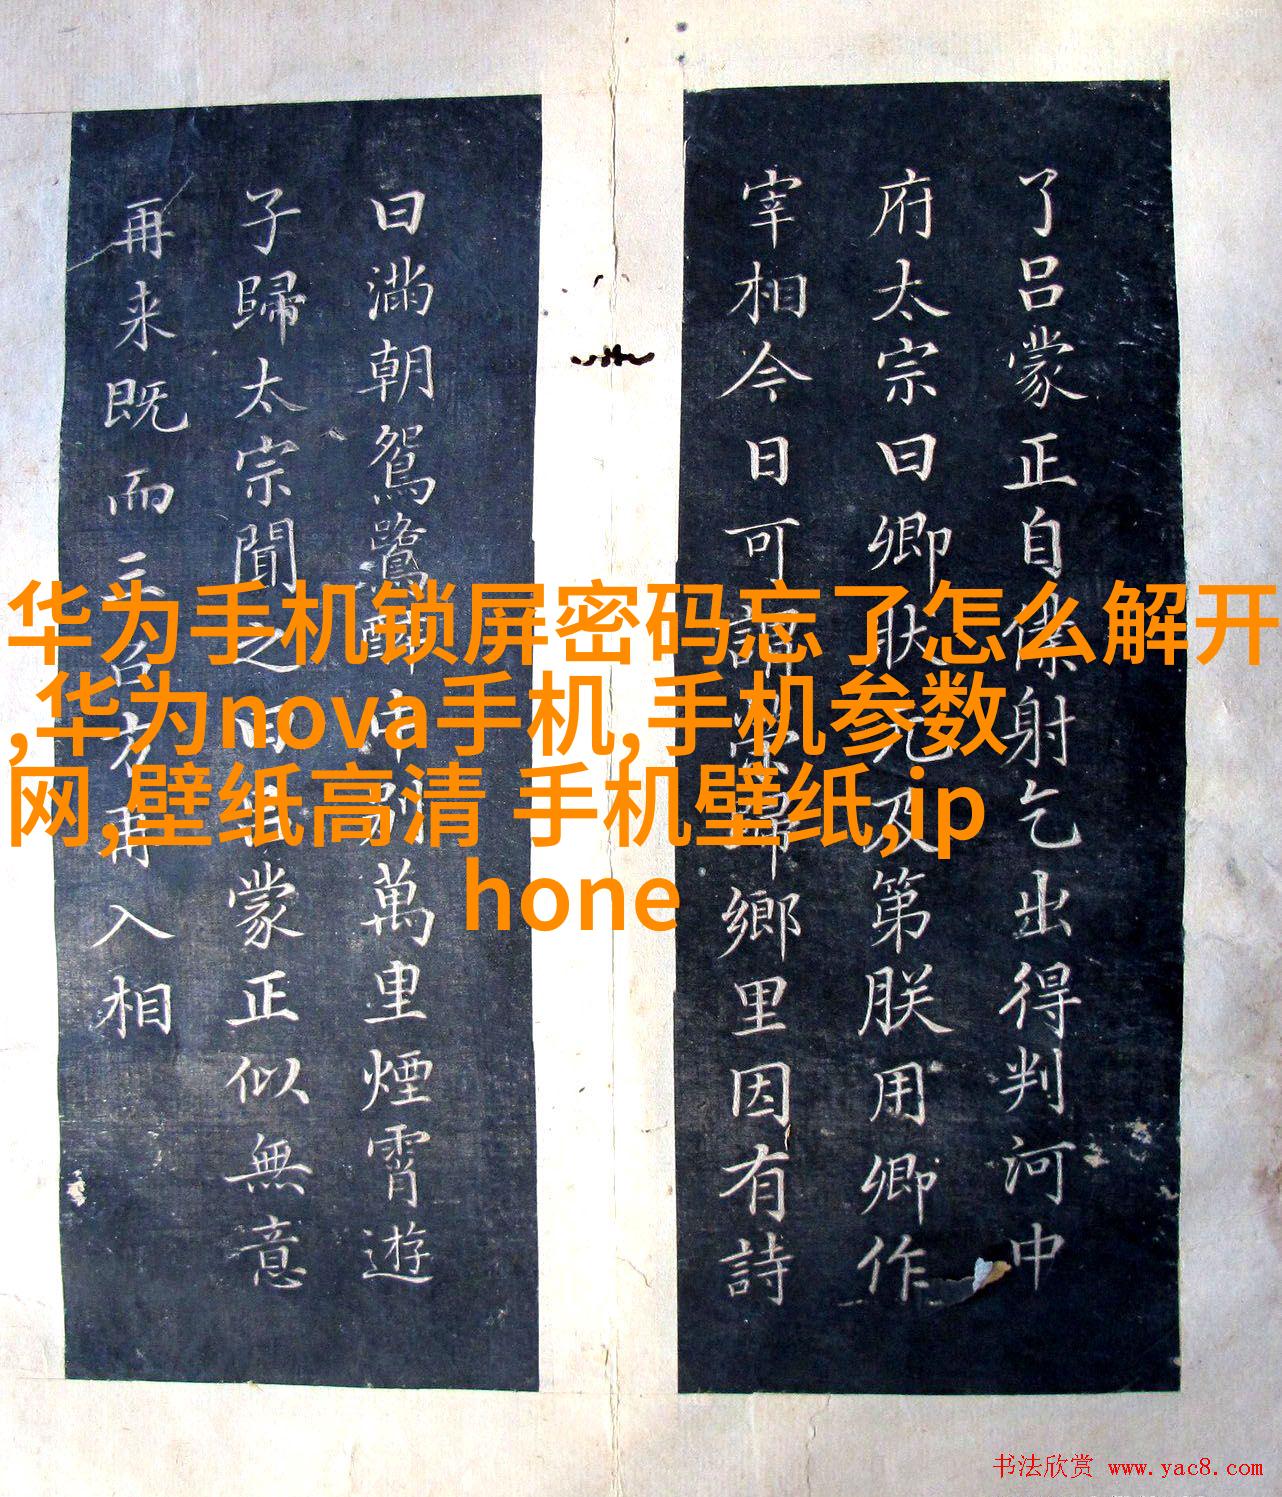 华为手机锁屏密码忘了怎么解开
,华为nova手机,手机参数
网,壁纸高清 手机壁纸,ip
hone
了吕蒙正自僕射乞出得判河中
府太宗曰卿狀元及第朕用卿作
宰相今日可謂榮歸鄉里因有詩
曰滿朝鴛鷺醉中別萬里煙霄遊
子歸太宗聞之曰呂蒙正似無意
再来既而三召方再入相
书法欣赏 www.yac8.com